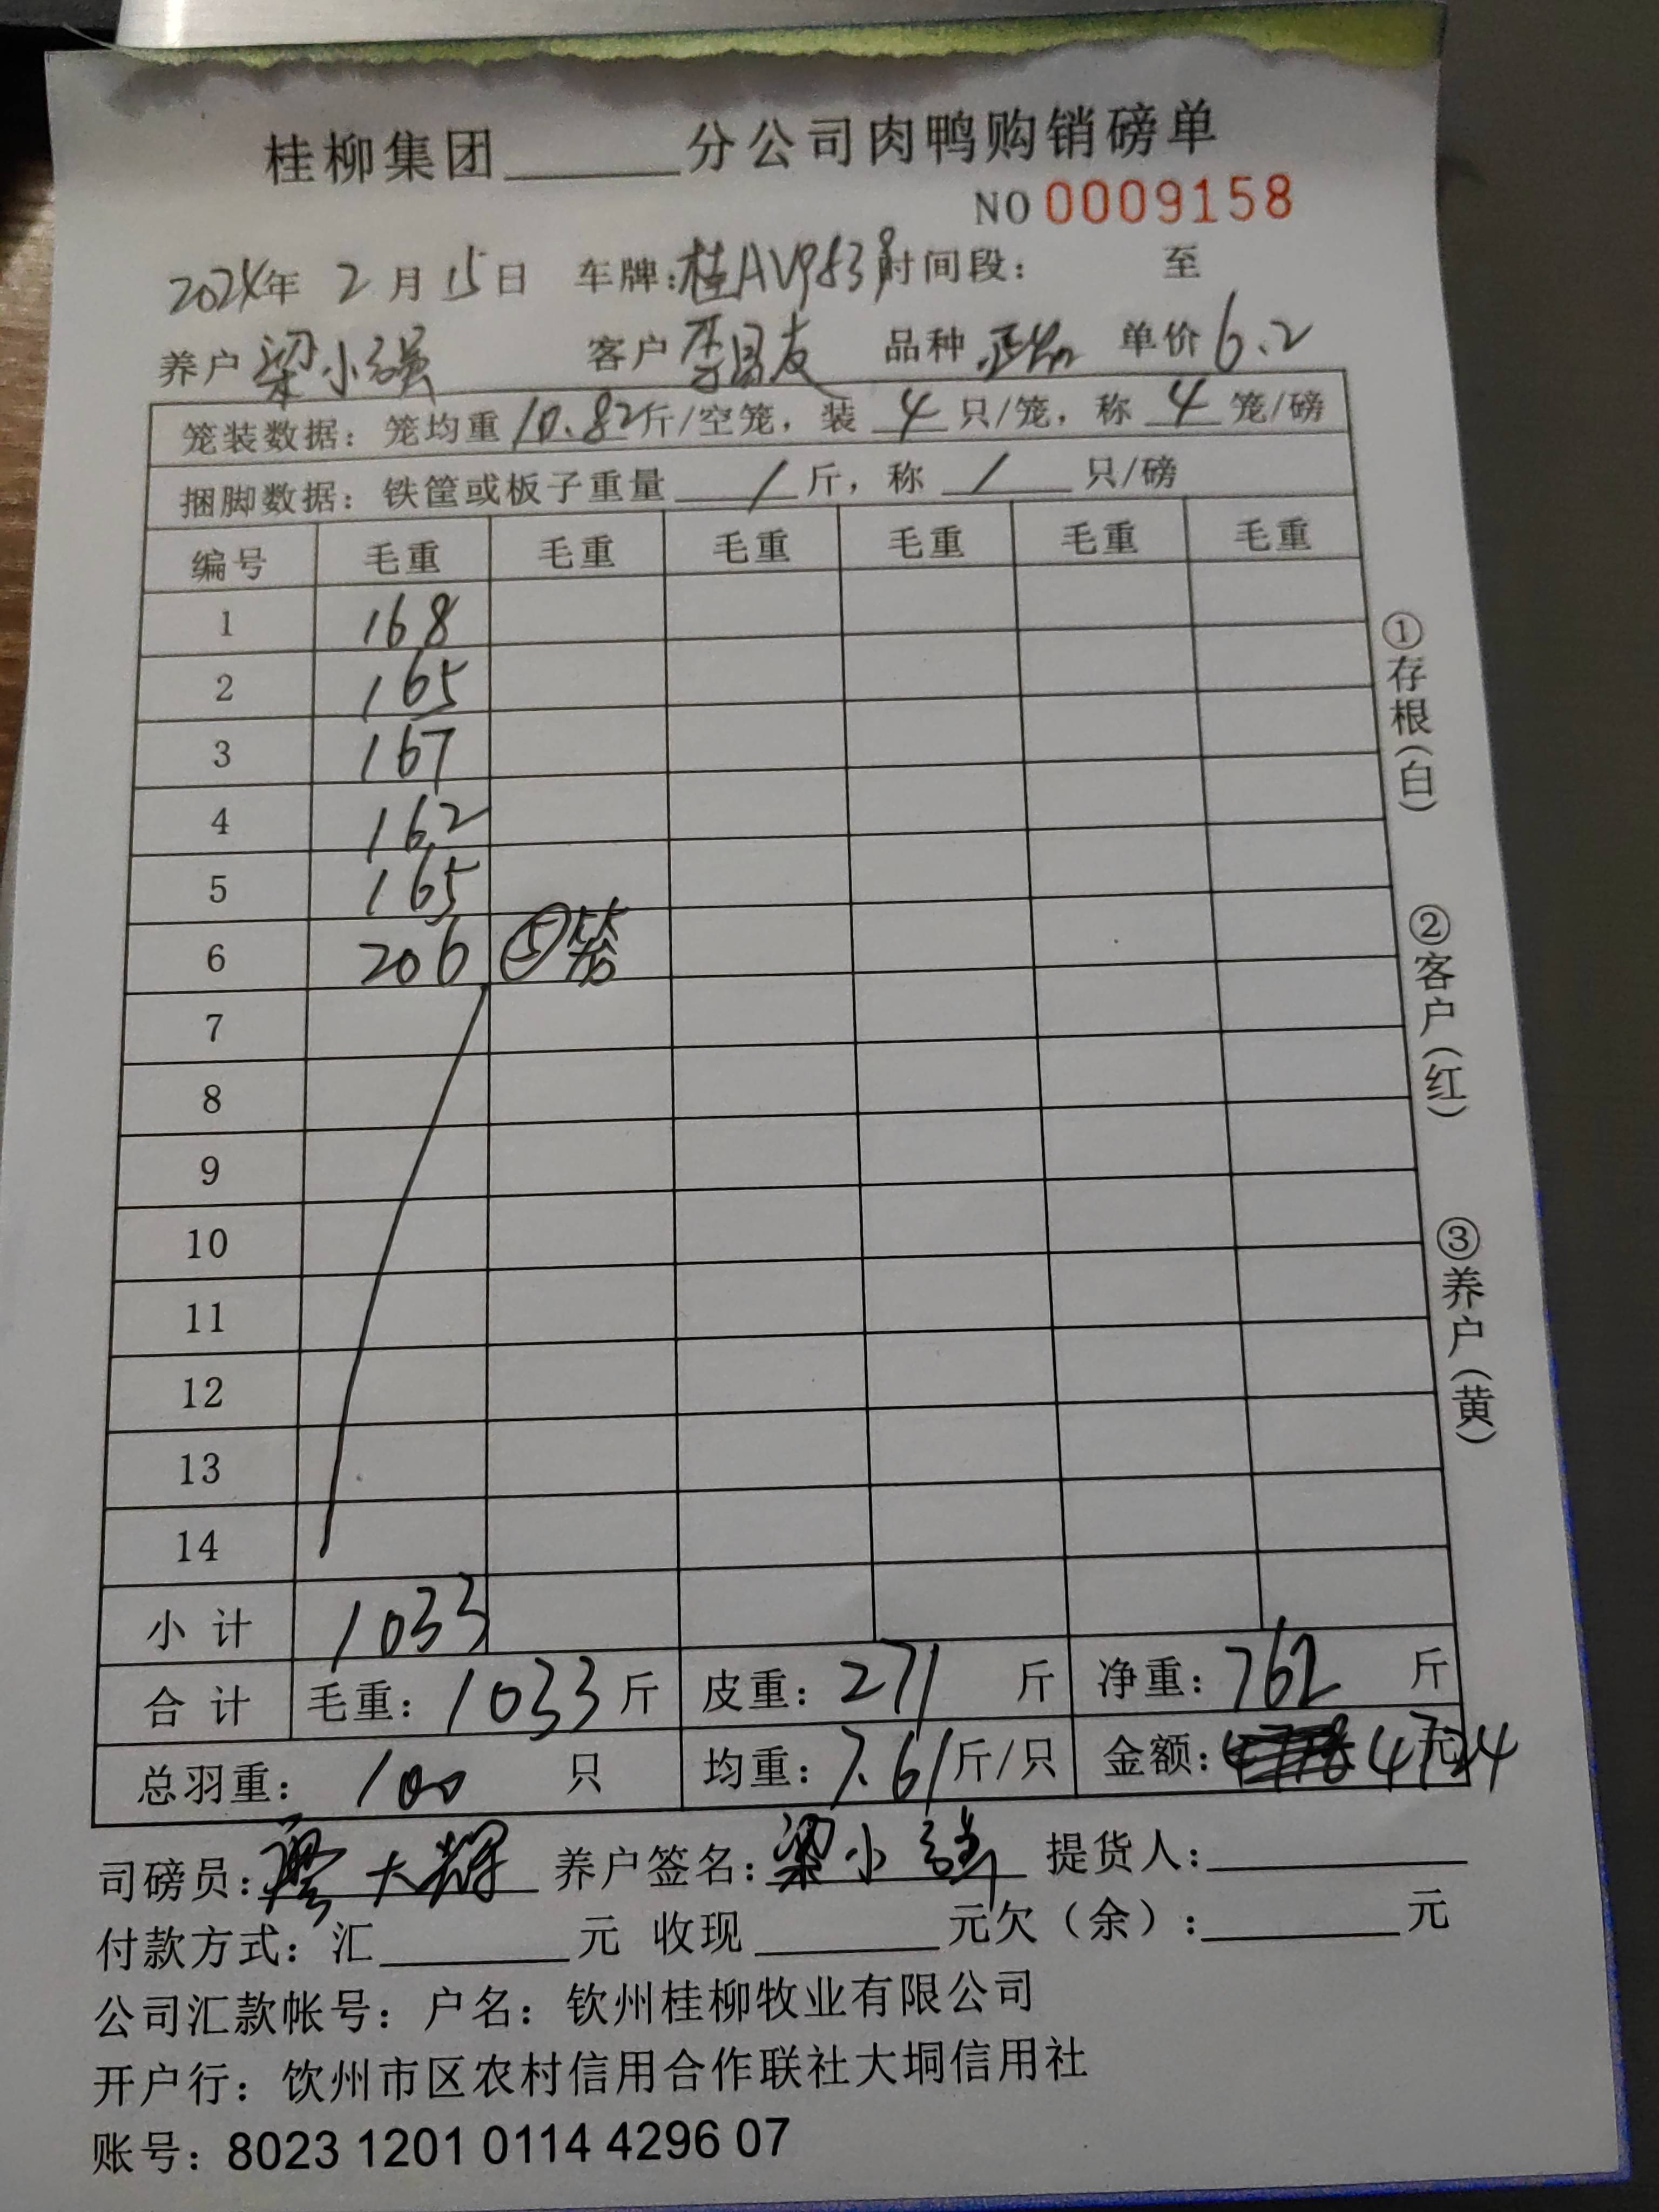 桂柳集团______分公司肉鸭购销磅单
NO 0009158
2024年 2月15日 车牌:桂AVP839 时间段: 至
养户 梁小强 客户 李昌友 品种 正品 单价 6.2
笼装数据: 笼均重 10.82 斤/空笼, 装 4 只/笼, 称 4 笼/磅
捆脚数据: 铁筐或板子重量 / 斤, 称 / 只/磅
编号 毛重 毛重 毛重 毛重 毛重 毛重
1 168
2 165
3 167
4 162
5 165
6 206 ⑤笼
7
8
9
10
11
12
13
14
小计 1033
合计 毛重: 1033 斤 皮重: 271 斤 净重: 762 斤
总羽重: 100 只 均重: 7.61 斤/只 金额: 4724 元
司磅员: 廖大辉 养户签名: 梁小强 提货人:______
付款方式: 汇______元 收现______元欠(余):______元
公司汇款帐号: 户名: 钦州桂柳牧业有限公司
开户行: 饮州市区农村信用合作联社大垌信用社
账号: 8023 1201 0114 4296 07
①存根(白)
②客户(红)
③养户(黄)